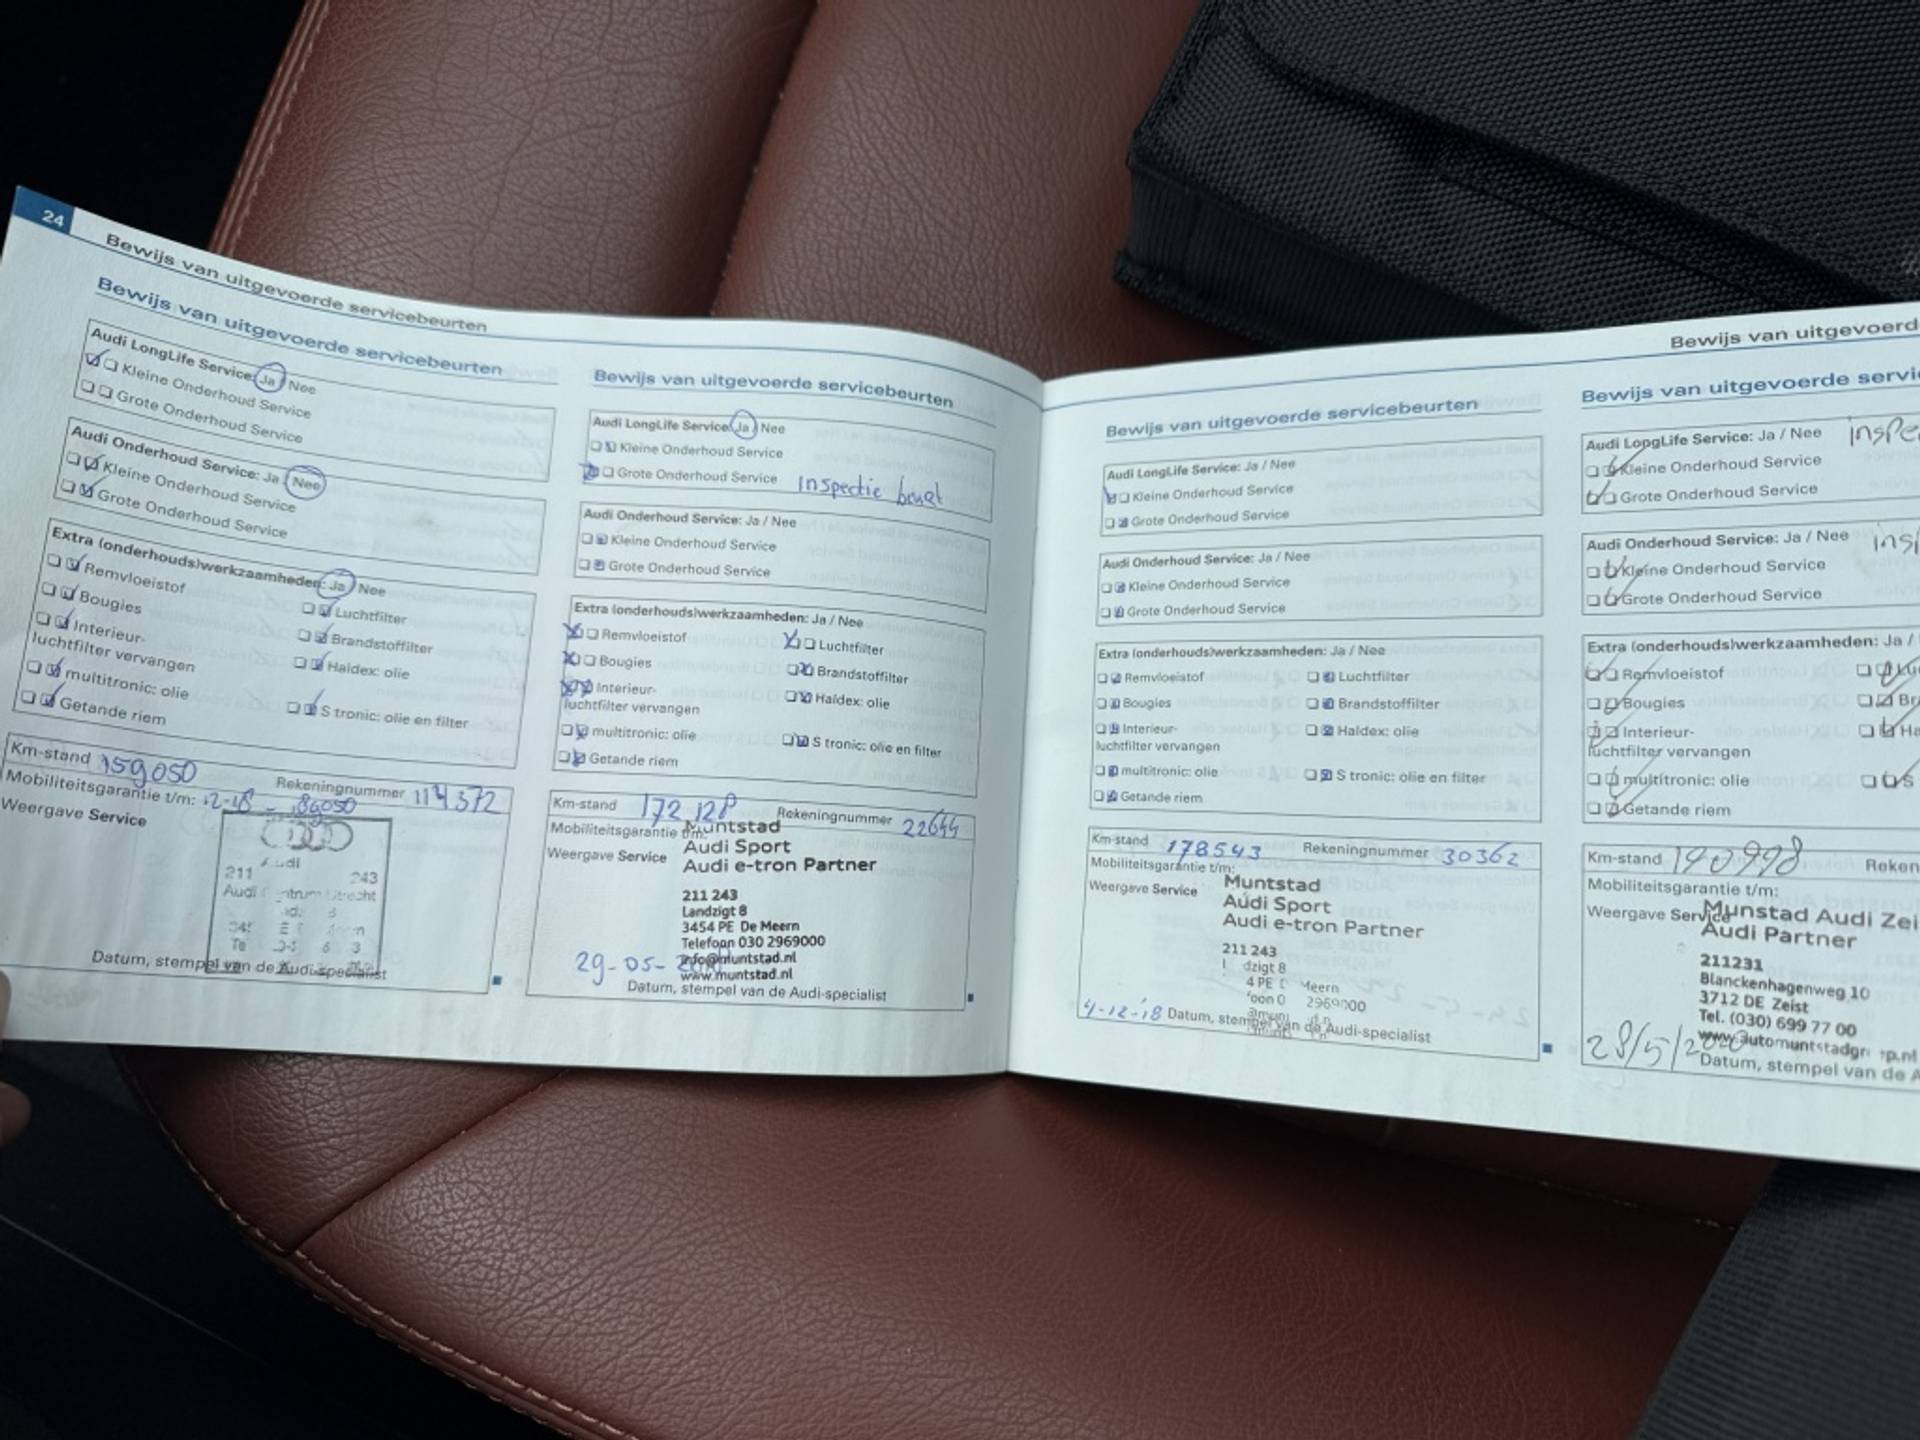 24
Bewijs van uitgevoerde servicebeurten
Bewijs van uitgevoerde servicebeurten
Audi LongLife Service: Ja / Nee
Kleine Onderhoud Service
Grote Onderhoud Service
Audi Onderhoud Service: Ja / Nee
Kleine Onderhoud Service
Grote Onderhoud Service
Extra (onderhouds)werkzaamheden: Ja / Nee
Remvloeistof
Luchtfilter
Bougies
Brandstoffilter
Interieur-
luchtfilter vervangen
Haldex: olie
multitronic: olie
S tronic: olie en filter
Getande riem
Km-stand 159050
Rekeningnummer 114372
Mobiliteitsgarantie t/m:
Weergave Service
211 243
Datum, stempel van de Audi-specialist
Bewijs van uitgevoerde servicebeurten
Audi LongLife Service: Ja / Nee
Kleine Onderhoud Service
Grote Onderhoud Service Inspectie beurt
Audi Onderhoud Service: Ja / Nee
Kleine Onderhoud Service
Grote Onderhoud Service
Extra (onderhouds)werkzaamheden: Ja / Nee
Remvloeistof
Luchtfilter
Bougies
Brandstoffilter
Interieur-
luchtfilter vervangen
Haldex: olie
multitronic: olie
S tronic: olie en filter
Getande riem
Km-stand 172128
Rekeningnummer 22644
Mobiliteitsgarantie t/m:
Muntstad
Weergave Service
Audi Sport
Audi e-tron Partner
211 243
Landzigt 8
3454 PE De Meern
Telefoon 030 2969000
info@muntstad.nl
29-05-
www.muntstad.nl
Datum, stempel van de Audi-specialist
Bewijs van uitgevoerde servicebeurten
Audi LongLife Service: Ja / Nee
Kleine Onderhoud Service
Grote Onderhoud Service
Audi Onderhoud Service: Ja / Nee
Kleine Onderhoud Service
Grote Onderhoud Service
Extra (onderhouds)werkzaamheden: Ja / Nee
Remvloeistof
Luchtfilter
Bougies
Brandstoffilter
Interieur-
luchtfilter vervangen
Haldex: olie
multitronic: olie
S tronic: olie en filter
Getande riem
Km-stand 178543
Rekeningnummer 30362
Mobiliteitsgarantie t/m:
Weergave Service
Muntstad
Audi Sport
Audi e-tron Partner
211 243
dzigt 8
4 PE Meern
foon 0 2969000
4-12-'18 Datum, stempel van de Audi-specialist
Bewijs van uitgevoerd
Bewijs van uitgevoerde servi
Audi LongLife Service: Ja / Nee inspe
Kleine Onderhoud Service
Grote Onderhoud Service
Audi Onderhoud Service: Ja / Nee insp
Kleine Onderhoud Service
Grote Onderhoud Service
Extra (onderhouds)werkzaamheden: Ja /
Remvloeistof
Lu
Bougies
Br
Interieur-
luchtfilter vervangen
Ha
multitronic: olie
S
Getande riem
Km-stand 190998
Reken
Mobiliteitsgarantie t/m:
Weergave Service
Munstad Audi Zei
Audi Partner
211231
Blanckenhagenweg 10
3712 DE Zeist
Tel. (030) 699 77 00
28/5/2020
Datum, stempel van de A